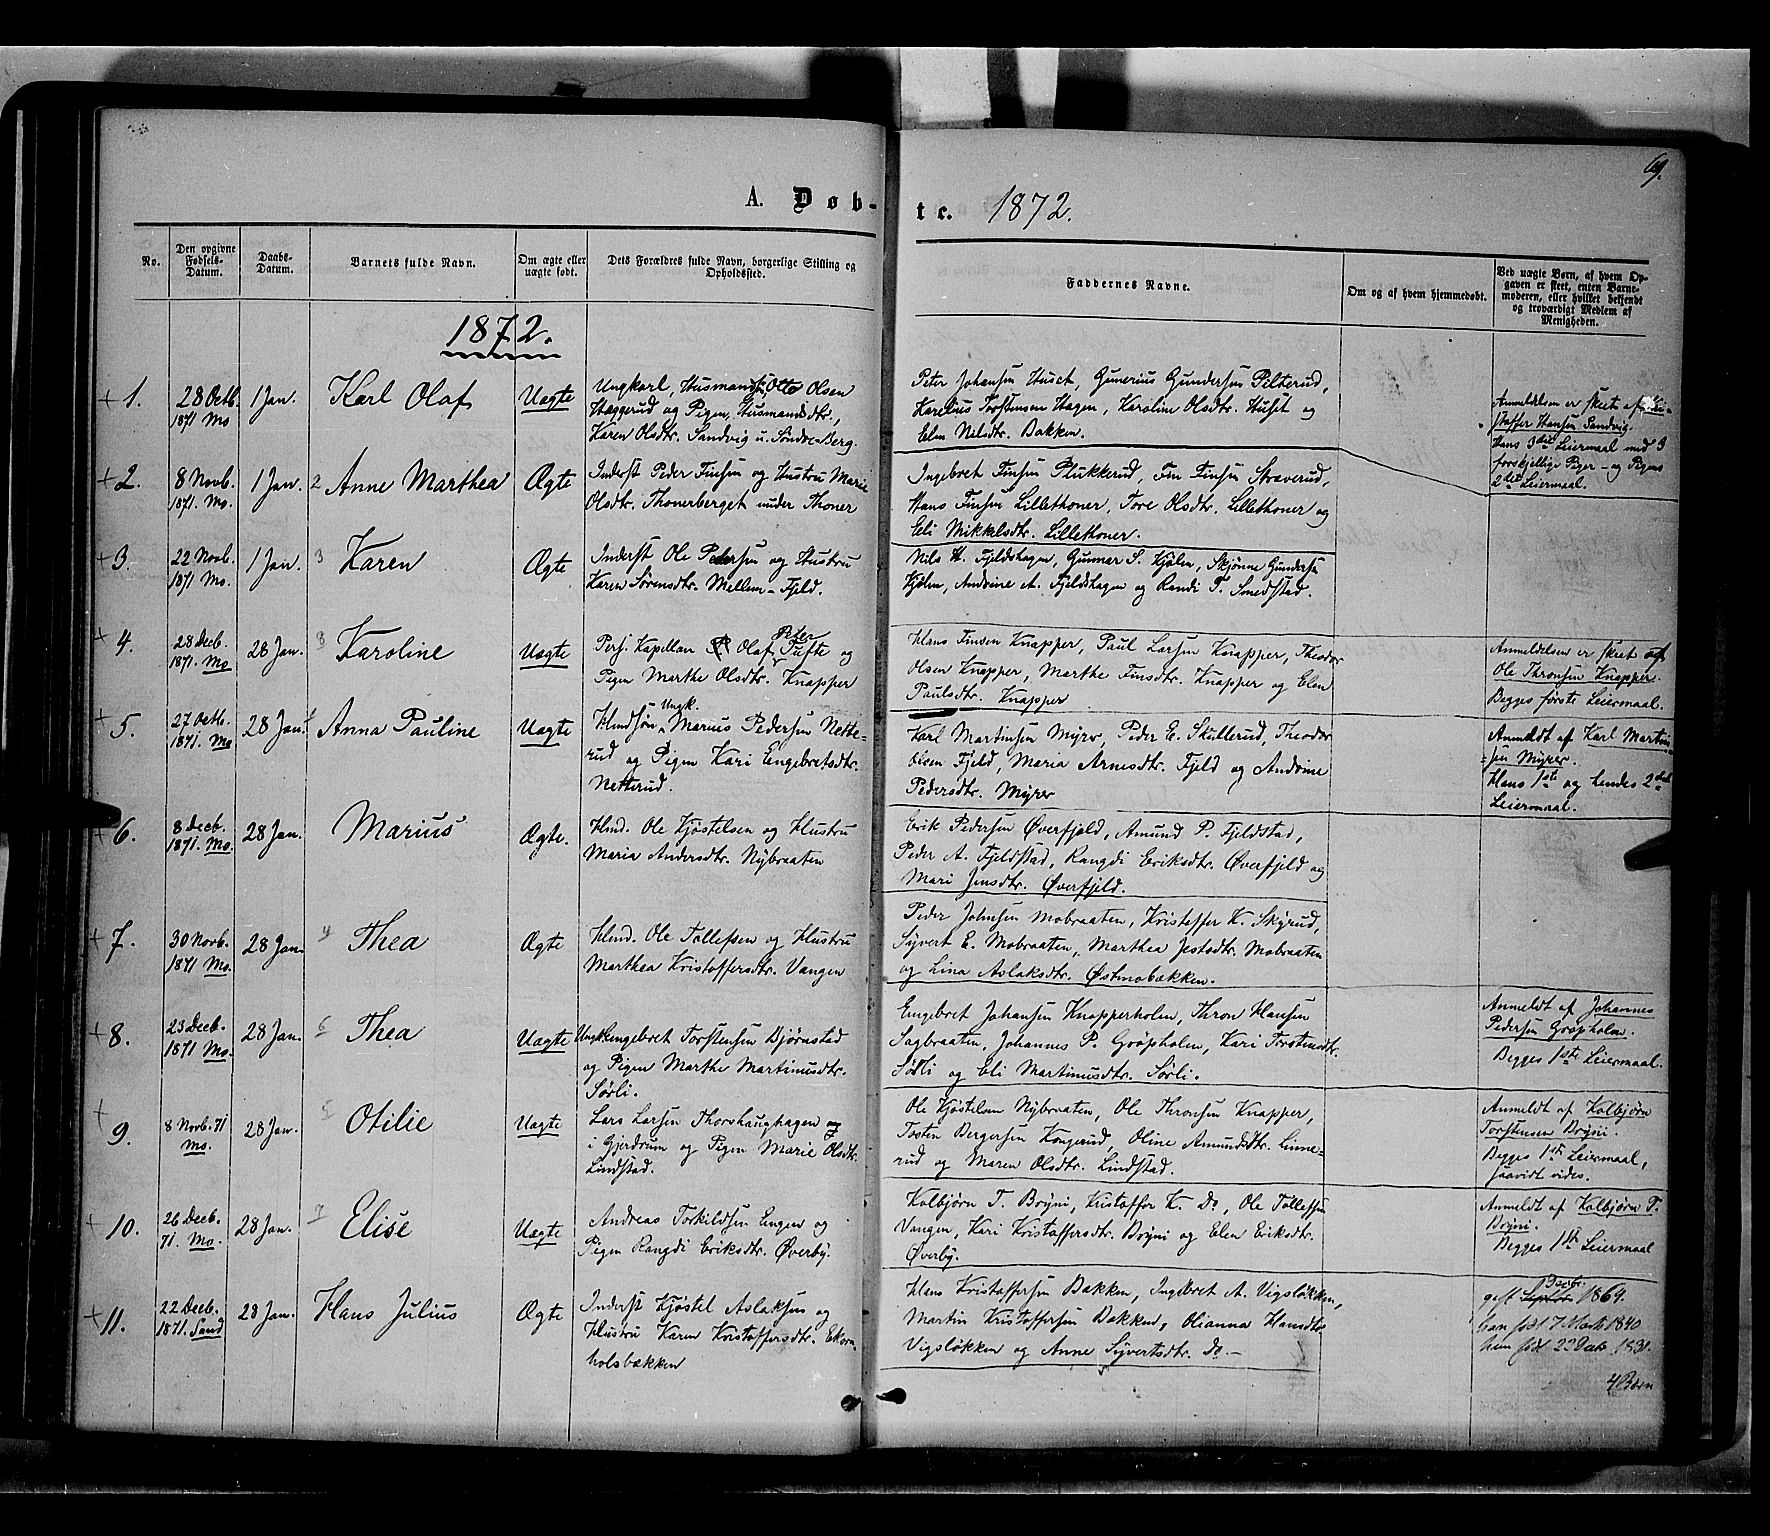 69.
A. Døb-
te. 1872.
No.
Den opgivne
Fødsels-
Datum.
Daabs-
Datum.
Barnets fulde Navn.
Om ægte eller
uægte født.
Dets Forældres fulde Navn, borgerlige Stilling og
Opholdssted.
Faddernes Navne.
Om og af hvem hjemmedøbt.
Ved uægte Børn, af hvem Op-
gaven er skeet, enten Barne-
moderen, eller hvilket bekjendt
og troværdigt Medlem af
Menigheden.
1872.
+ 1.
28 Octb.
1871 Mo
1 Jan.
Karl Olaf
Uægte
Ungkarl, Husmands. Otto Olsen
Hæggerud og Pigen, Husmandsdtr,
Karen Olsdtr. Sandvig u. Søndre Berg.
Peter Johansen Huset, Gunerius Gundersen Pilterud,
Karelius Torstensen Hagen, Karoline Olsdtr. Huset og
Elen Nilsdtr. Bakken.
Anmeldelsen er skeet af Kri-
stoffer Hansen Sandvig.
Hans 3die Leiermaal med 3
forskjellige Piger - og Pigens
2det Leiermaal.
+ 2.
8 Novb.
1871. Mo.
1 Jan.
2
Anne Marthea
Ægte
Inderst Peder Finsen og Hustru Marie
Olsdtr. Thonerberget under Thoner
Ingebret Finsen Plukkerud, Fin Finsen Straverud,
Hans Finsen Lillethoner, Tore Olsdtr. Lillethoner og
Eli Mikkelsdtr. Lillethoner.
+ 3.
22 Novb.
1871 Mo.
1 Jan.
3
Karen
Ægte
Inderst Ole Pedersen og Hustru
Karen Sørensdtr. Mellem-Fjeld.
Nils H. Fjeldshagen, Gunnar S. Kjølen, Skjønne Gunders
Kjølen, Andrine A. Fjeldshagen og Randi T. Smedstad.
+ 4.
28 Decb.
1871. Mo
28 Jan.
8
Karoline
Uægte
Pers. Kapellan Olaf Peter Tufte og
Pigen Marthe Olsdtr. Knapper
Hans Finsen Knapper, Paul Larsen Knapper, Theodor
Olsen Knapper, Marthe Finsdtr. Knapper og Elen
Paulsdtr. Knapper
Anmeldelsen er skeet af
Ole Thronsen Knapper.
Begges første Leiermaal.
+ 5.
27 Octb.
1871. Mo
28 Jan.
Anna Pauline
Uægte
Hmdsøn Ungk. Marius Pedersen Nette-
rud og Pigen Kari Engebretsdtr.
Netterud.
Karl Martinsen Myrer, Peder E. Skullerud, Theodor
Olsen Fjeld, Maria Arnesdtr. Fjeld og Andrine
Pedersdtr. Myrer
Anmeldt af Karl Martin-
sen Myrer.
Hans 1ste og hendes 2det
Leiermaal.
+ 6.
8 Decb.
1871. Mo.
28 Jan.
Marius
Ægte.
Hmd. Ole Kjøstelsen og Hustru
Maria Andersdtr. Nybraaten
Erik Pedersen Øverfjeld, Amund P. Fjeldstad,
Peder A. Fjeldstad, Rangdi Eriksdtr. Øverfjeld og
Mari Jensdtr. Øverfjeld.
+ 7.
30 Novb.
1871 Mo.
28 Jan.
4
Thea
Ægte
Hmd. Ole Tollefsen og Hustru
Marthea Kristoffersdtr. Vangen
Peder Johnsen Mobraaten, Kristoffer K. Skyrud,
Syvert E. Mobraaten, Marthea Jestsdtr. Mobraaten
og Lina Aslaksdtr. Østmobækken.
+ 8.
23 Decb.
1871 Mo.
28 Jan.
6
Thea
Uægte
Ungk Engebret Torstensen Bjørnstad
og Pigen Marthe Martinusdtr.
Sørli.
Engebret Johansen Knapperholen, Thron Hansen
Sagbraaten, Johannes P. Grøpholen, Kari Torstensdtr.
Sørli og Eli Martinusdtr. Sørli.
Anmeldt af Johannes
Pedersen Grøpholen.
Begges 1ste Leiermaal.
+ 9.
8 Novb. 71
Mo.
28 Jan.
5
Otilie
Uægte
Lars Larsen Thorshaughagen
i Gjerdrum og Pigen Marie Olsdtr.
Lindstad.
Ole Kjøstelsen Nybraaten, Ole Thronsen Knapper,
Trosten Bergersen Kongerud, Oline Amundsdtr. Linne-
rud og Maren Olsdtr. Lindstad.
Anmeldt af Kolbjørn
Torstensen Bryni.
Begges 1ste Leiermaal,
saavidt vides.
+ 10.
26 Decb.
71. Mo.
28 Jan.
7
Elise
Uægte
Andreas Torkildsen Engen og
Pigen Rangdi Eriksdtr. Øverby.
Kolbjørn T. Bryni, Kristoffer K. Do, Ole Tollefsen
Vangen, Kari Kristoffersdtr. Bryni og Elen Eriksdtr.
Øverby.
Anmeldt af Kolbjørn T.
Bryni.
Begges 1ste Leiermaal
+ 11.
22 Decb.
1871. Sand
28 Jan.
Hans Julius
Ægte
Inderst Kjøstel Aslaksen og
Hustru Karen Kristoffersdtr. Ekorn-
holsbækken
Hans Kristoffersen Bakken, Ingebret A. Vigsløkken,
Martin Kristoffersen Bakken, Olianna Hansdtr.
Vigsløkken og Anne Syvertsdtr. Do. -
gift Decbr. 1869.
han født 7 Marts 1840
hun født 22 1831.
4 Børn